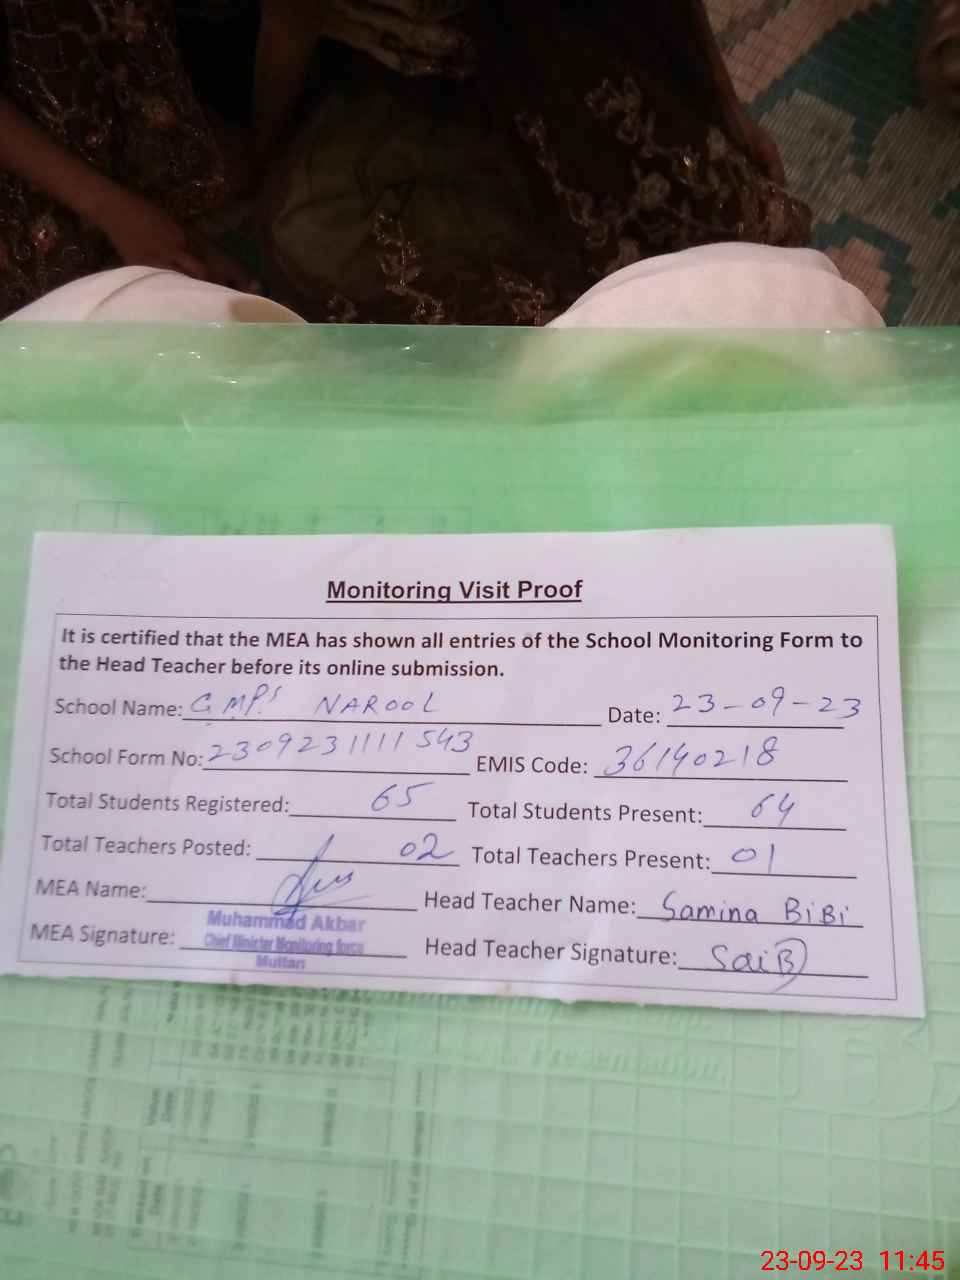 Monitoring Visit Proof
It is certified that the MEA has shown all entries of the School Monitoring Form to
the Head Teacher before its online submission.
School Name: GMPS NAROOL Date: 23-09-23
School Form No: 23092311111543 EMIS Code: 36140218
Total Students Registered: 65 Total Students Present: 64
Total Teachers Posted: 02 Total Teachers Present: 01
MEA Name: Head Teacher Name: Samina BiBi
Muhammad Akbar
MEA Signature: Chief Minister Monitoring force Head Teacher Signature: SaiB
Multan
Presentation
23-09-23 11:45